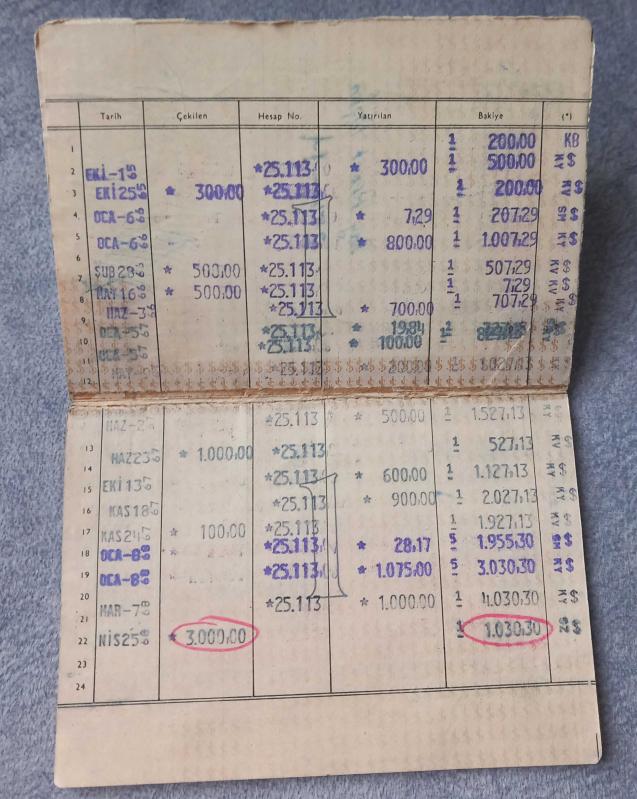 Tarih Çekilen Hesap No. Yatırılan Bakiye (*)
1 1 200,00 KB
2 EKİ-1 65 *25.113 * 300,00 1 500,00 KY $
3 EKİ25 65 * 300,00 *25.113 1 200,00 KV $
4 OCA-6 66 *25.113 * 7,29 1 207,29 GM $
5 OCA-6 66 *25.113 * 800,00 1 1.007,29 KY $
6
7 ŞUB28 66 * 500,00 *25.113 1 507,29 KV $
8 MAY16 66 * 500,00 *25.113 1 7,29 KV $
9 HAZ-3 66 *25.113 * 700,00 1 707,29 KY $
10 OCA-5 67 *25.113 * 19,84 1
11 OCA-5 67 *25.113 * 100,00 1
12 *25.113 * 200,00 1 1.027,13
HAZ-2 *25.113 * 500,00 1 1.527,13 KY $
13 HAZ23 67 * 1.000,00 *25.113 1 527,13 KV $
14
15 EKİ13 67 *25.113 * 600,00 1 1.127,13 KY $
16 KAS18 67 *25.113 * 900,00 1 2.027,13 KY $
17 KAS24 67 * 100,00 *25.113 1 1.927,13 KV $
18 OCA-8 68 *25.113 * 28,17 5 1.955,30 GM $
19 OCA-8 68 *25.113 * 1.075,00 5 3.030,30 KY $
20 MAR-7 68 *25.113 * 1.000,00 1 4.030,30 KY $
21
22 NİS25 68 * 3.000,00 1 1.030,30 GZ $
23
24